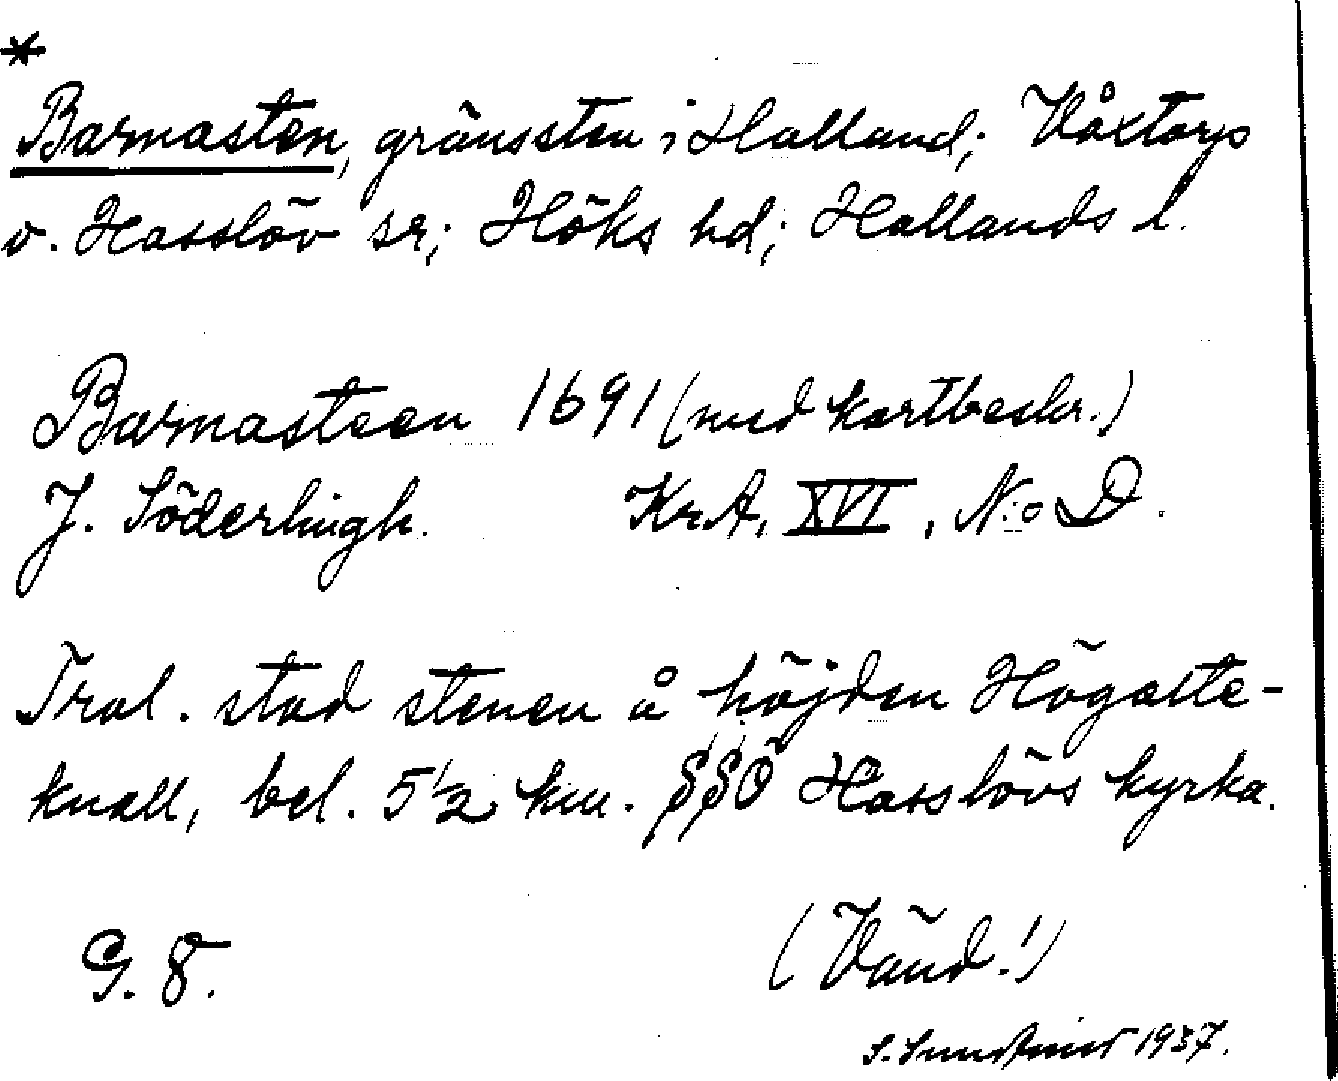 *
Barnasten, gränssten i Halland; Våxtorps
o. Hasslöv sr; Höks hd; Hallands l.
Barnasteen 1691 (med kartbeskr.)
J. Söderhingh. KrA, XVI, N:o D.
Trol. stod stenen å höjden Högalte-
knall, bel. 5 1/2 km. SSÖ Hasslövs kyrka.
G. 8. (Vänd!)
S. 1937.